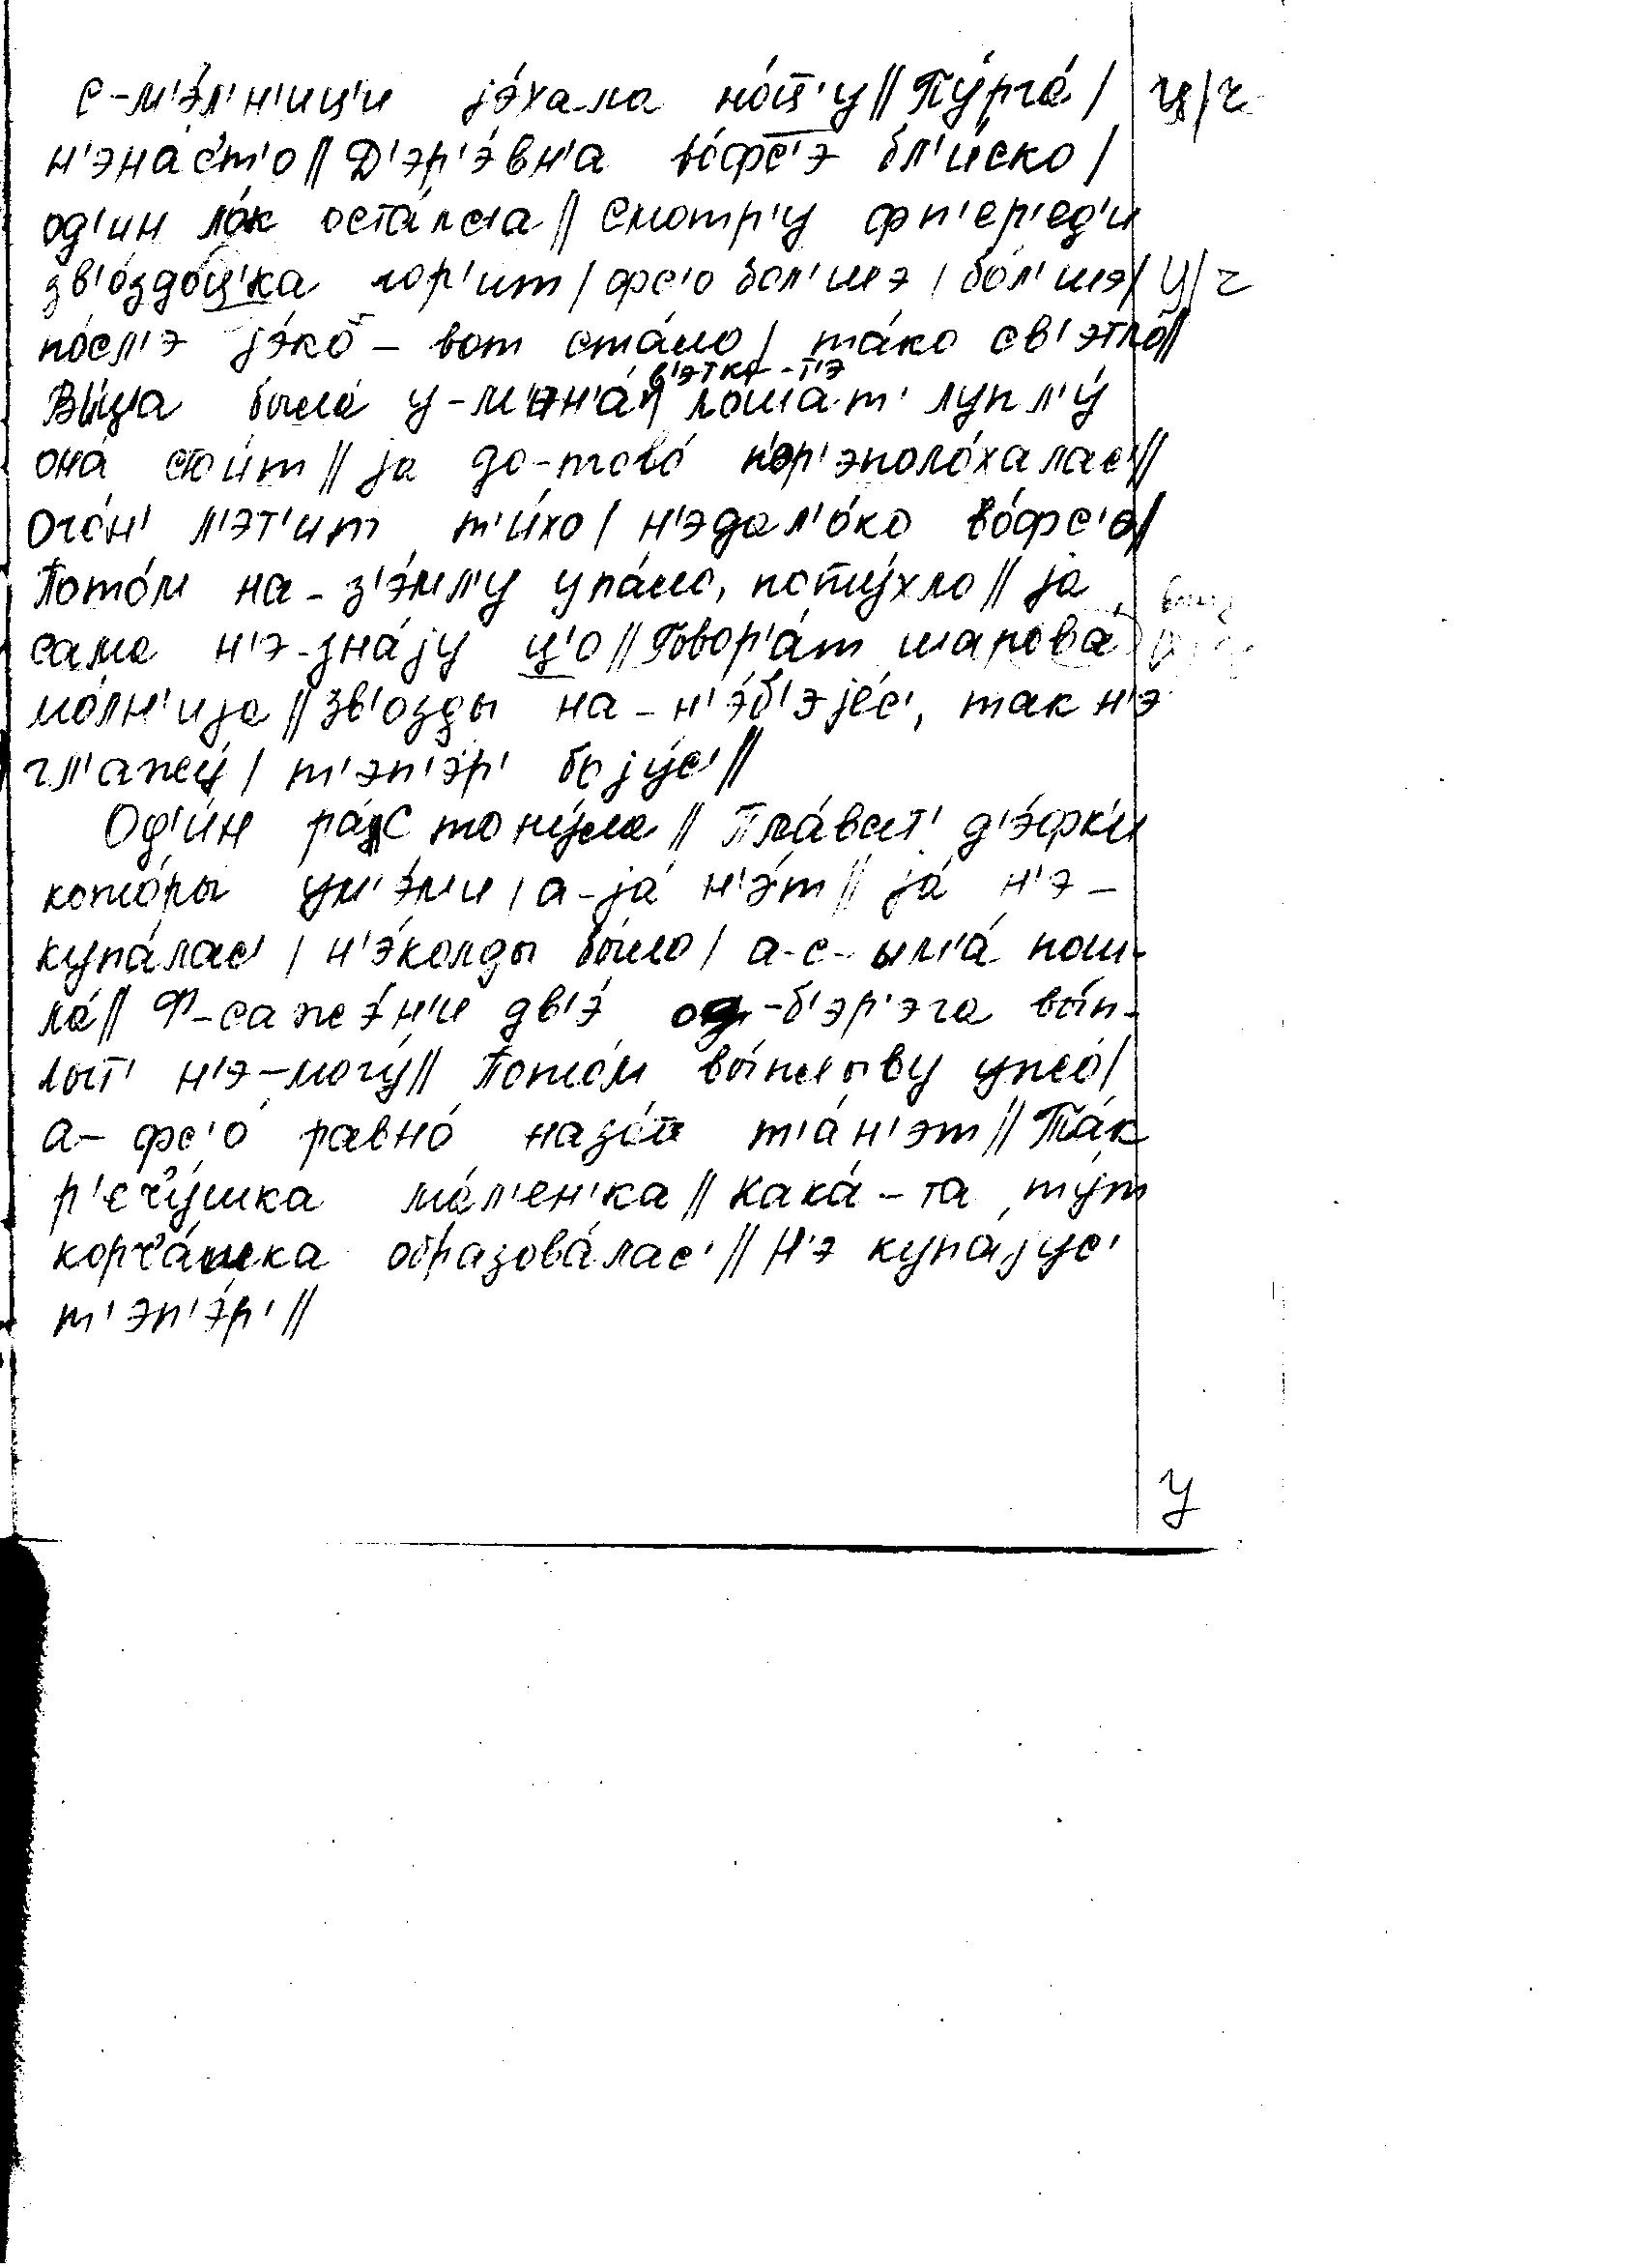 с-м'э́л'н'иц'и jэ́хала но́ц'у // Пу́рга́ / ц/ч
н'эна́с'т'о // Д'эр'э́вн'а во́фс'э бл'и́ско /
од'ин ло́к оста́лс'а // смотр'у фп'ер'ед'и
зв'о́здоц'ка гор'ит / фс'о бол'шэ / бо́л'шэ / ц/ч
по́сл'э jэ́ко - вот ста́ло / та́ко св'этло́ //
Ви́ца была́ у-м'эн'а́ / в'этка-т'э лошат' лупл'у́
она́ стои́т // jа до-тово́ пэр'эполо́халас' //
Ого́н' л'эт'ит т'и́хо / н'эдал'о́ко во́фс'о /
Пото́м на-з'э́мл'у упа́ло, поту́хло // jа
сама н'э-зна́jу ц'о // Говор'а́т шарова́
мо́лн'иjа // Зв'озды на-н'э́б'э jе́с', так н'э
гл'ажу́ / т'эп'э́р' боjу́с' //
Од'и́н ра́с тону́ла // Пла́ват' д'э́фк'и
кото́ры ум'э́ли / а-jа́ н'э́т // jа́ н'э-
купа́лас' / н'э́колды бы́ло / а-с-ыл'а́ пош-
ла́ // Ф-саже́н'и дв'э́ од-б'эр'эга вы́п-
лыт' н'э-могу́ // Пото́м вы́плыву ужо́ /
а-фс'о́ равно́ назо́т т'а́н'эт // Та́к
р'еч'у́шка ма́л'ен'ка // кака́-та ту́т
корч'а́шка образова́лас' // Н'э купа́jус'
т'эп'э́р' //
У